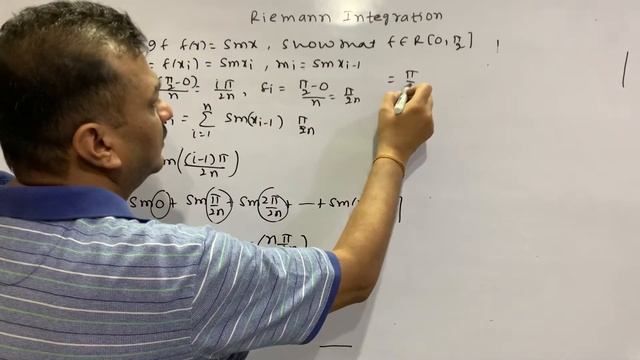 Riemann Integration
gf f(x) = sinx, show that f ∈ R[0, π/2] !
= f(xi) = sinxi, mi = sinxi-1
(π/2-0)/n = iπ/2n, δi = (π/2-0)/n = π/2n
= Σ i=1 n sin(xi-1) π/2n
((i-1)π/2n)
sin0 + sin(π/2n) + sin(2π/2n) + --- + sin( ]
= π
(nπ